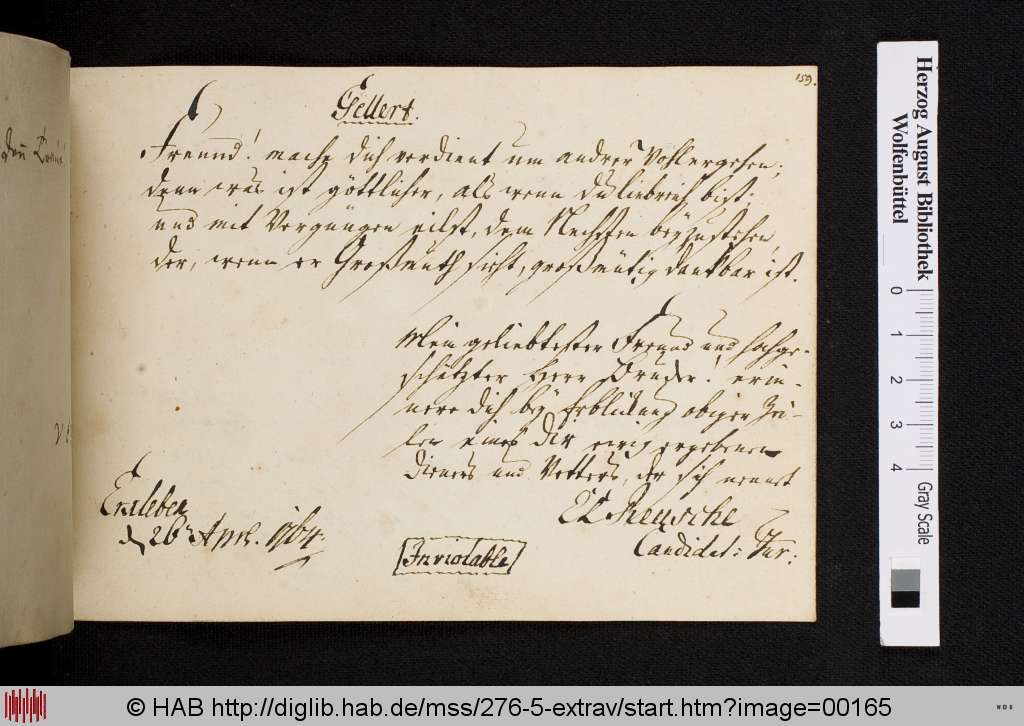 159.
Gellert.
Freund! mache dich verdient um andrer Wohlergehen;
denn was ist göttlicher, als wenn du liebreich bist,
und mit Vergnügen eilst, dem Nechsten beyzustehen,
der, wenn er Großmuth sieht, großmütig dankbar ist.
Mein geliebtester Freund und hochge-
schätzter Herr Bruder! erin-
nere dich bey Erblickung obiger Zei-
len eines dir ewig ergebenen
Dieners und Vetters, der sich nennt
Reusche
Candidat: Jur:
Erxleben
d 26 Apr. 1764.
Inviolable
Herzog August Bibliothek
Wolfenbüttel
0 1 2 3 4
Gray Scale
© HAB http://diglib.hab.de/mss/276-5-extrav/start.htm?image=00165
WDB